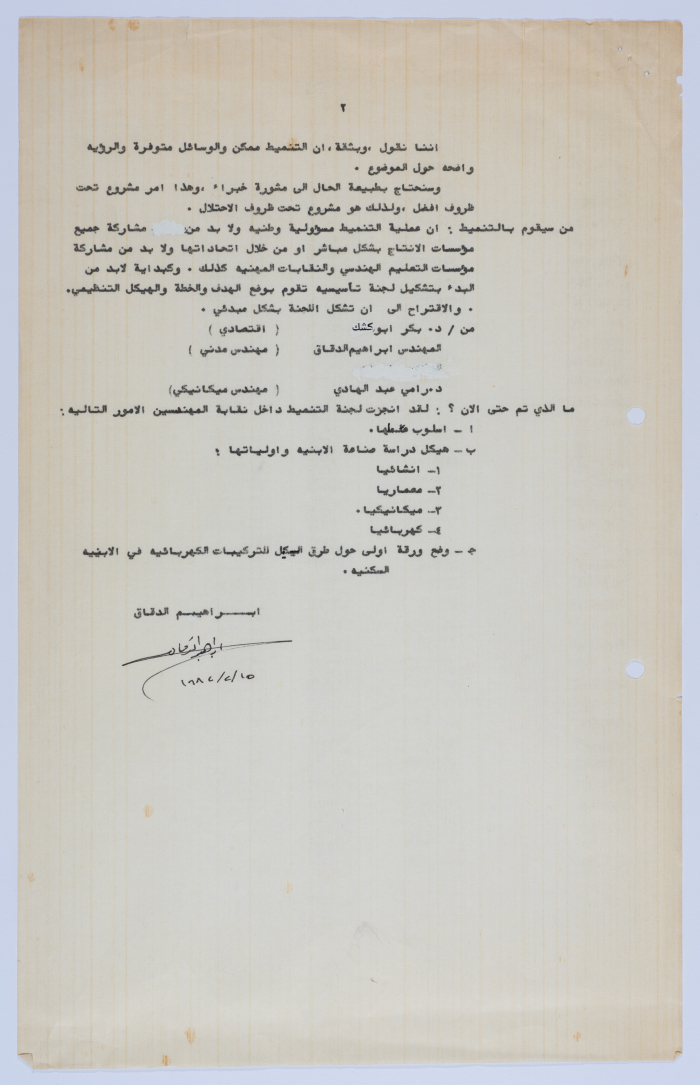 ٢
اننا نقول ،وبثقة ،ان التنميط ممكن والوسائل متوفرة والرؤيه
واضحه حول الموضوع .
وسنحتاج بطبيعة الحال الى مشورة خبراء ،وهذا امر مشروع تحت
ظروف افضل ،ولذلك هو مشروع تحت ظروف الاحتلال .
من سيقوم بالتنميط : ان عملية التنميط مسؤولية وطنيه ولا بد من مشاركة جميع
مؤسسات الانتاج بشكل مباشر او من خلال اتحاداتها ولا بد من مشاركة
مؤسسات التعليم الهندسي والنقابات المهنيه كذلك . وكبداية لابد من
البدء بتشكيل لجنة تأسيسيه تقوم بوضع الهدف والخطة والهيكل التنظيمي.
. والاقتراح الى ان تشكل اللجنة بشكل مبدئي .
من / د. بكر ابوكشك ( اقتصادي )
المهندس ابراهيم الدقاق ( مهندس مدني )
د. رامي عبد الهادي ( مهندس ميكانيكي)
ما الذي تم حتى الان ؟ : لقد انجزت لجنة التنميط داخل نقابة المهندسين الامور التاليه :
ا - اسلوب عملها .
ب - هيكل دراسة صناعة الابنيه واولياتها :
١- انشائيا
٢- معماريا
٣- ميكانيكيا .
٤- كهربائيا
ج - وضع ورقة اولى حول طرق للتركيبات الكهربائيه في الابنيه
السكنيه .
ابراهيم الدقاق